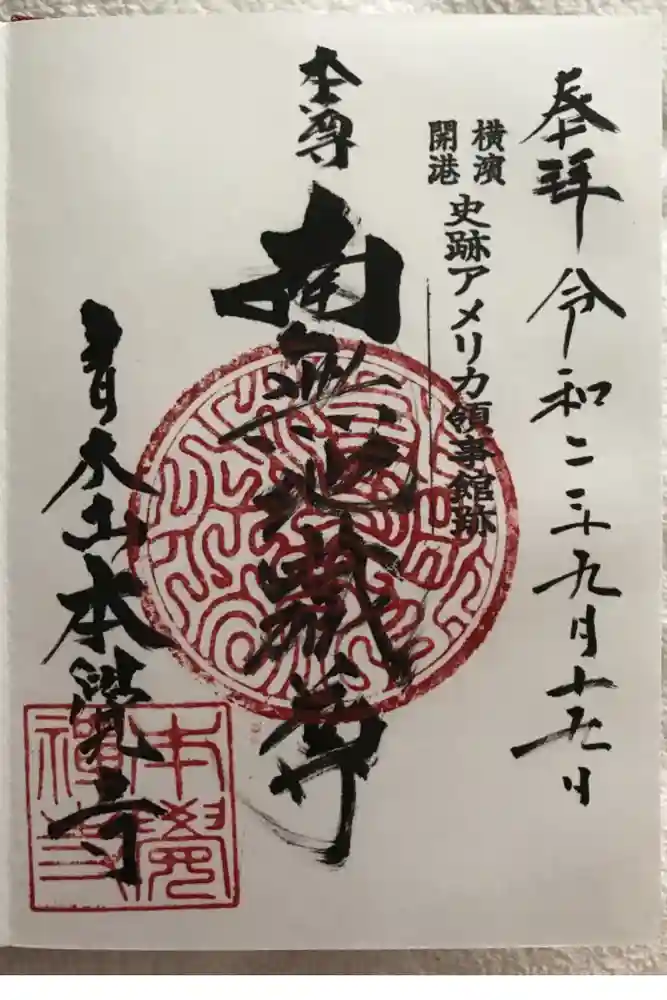 奉拝 令和二年九月十五日
横濱
開港
史跡アメリカ領事館跡
本尊
南無地蔵尊
青木山本覚寺
本覺
禅寺